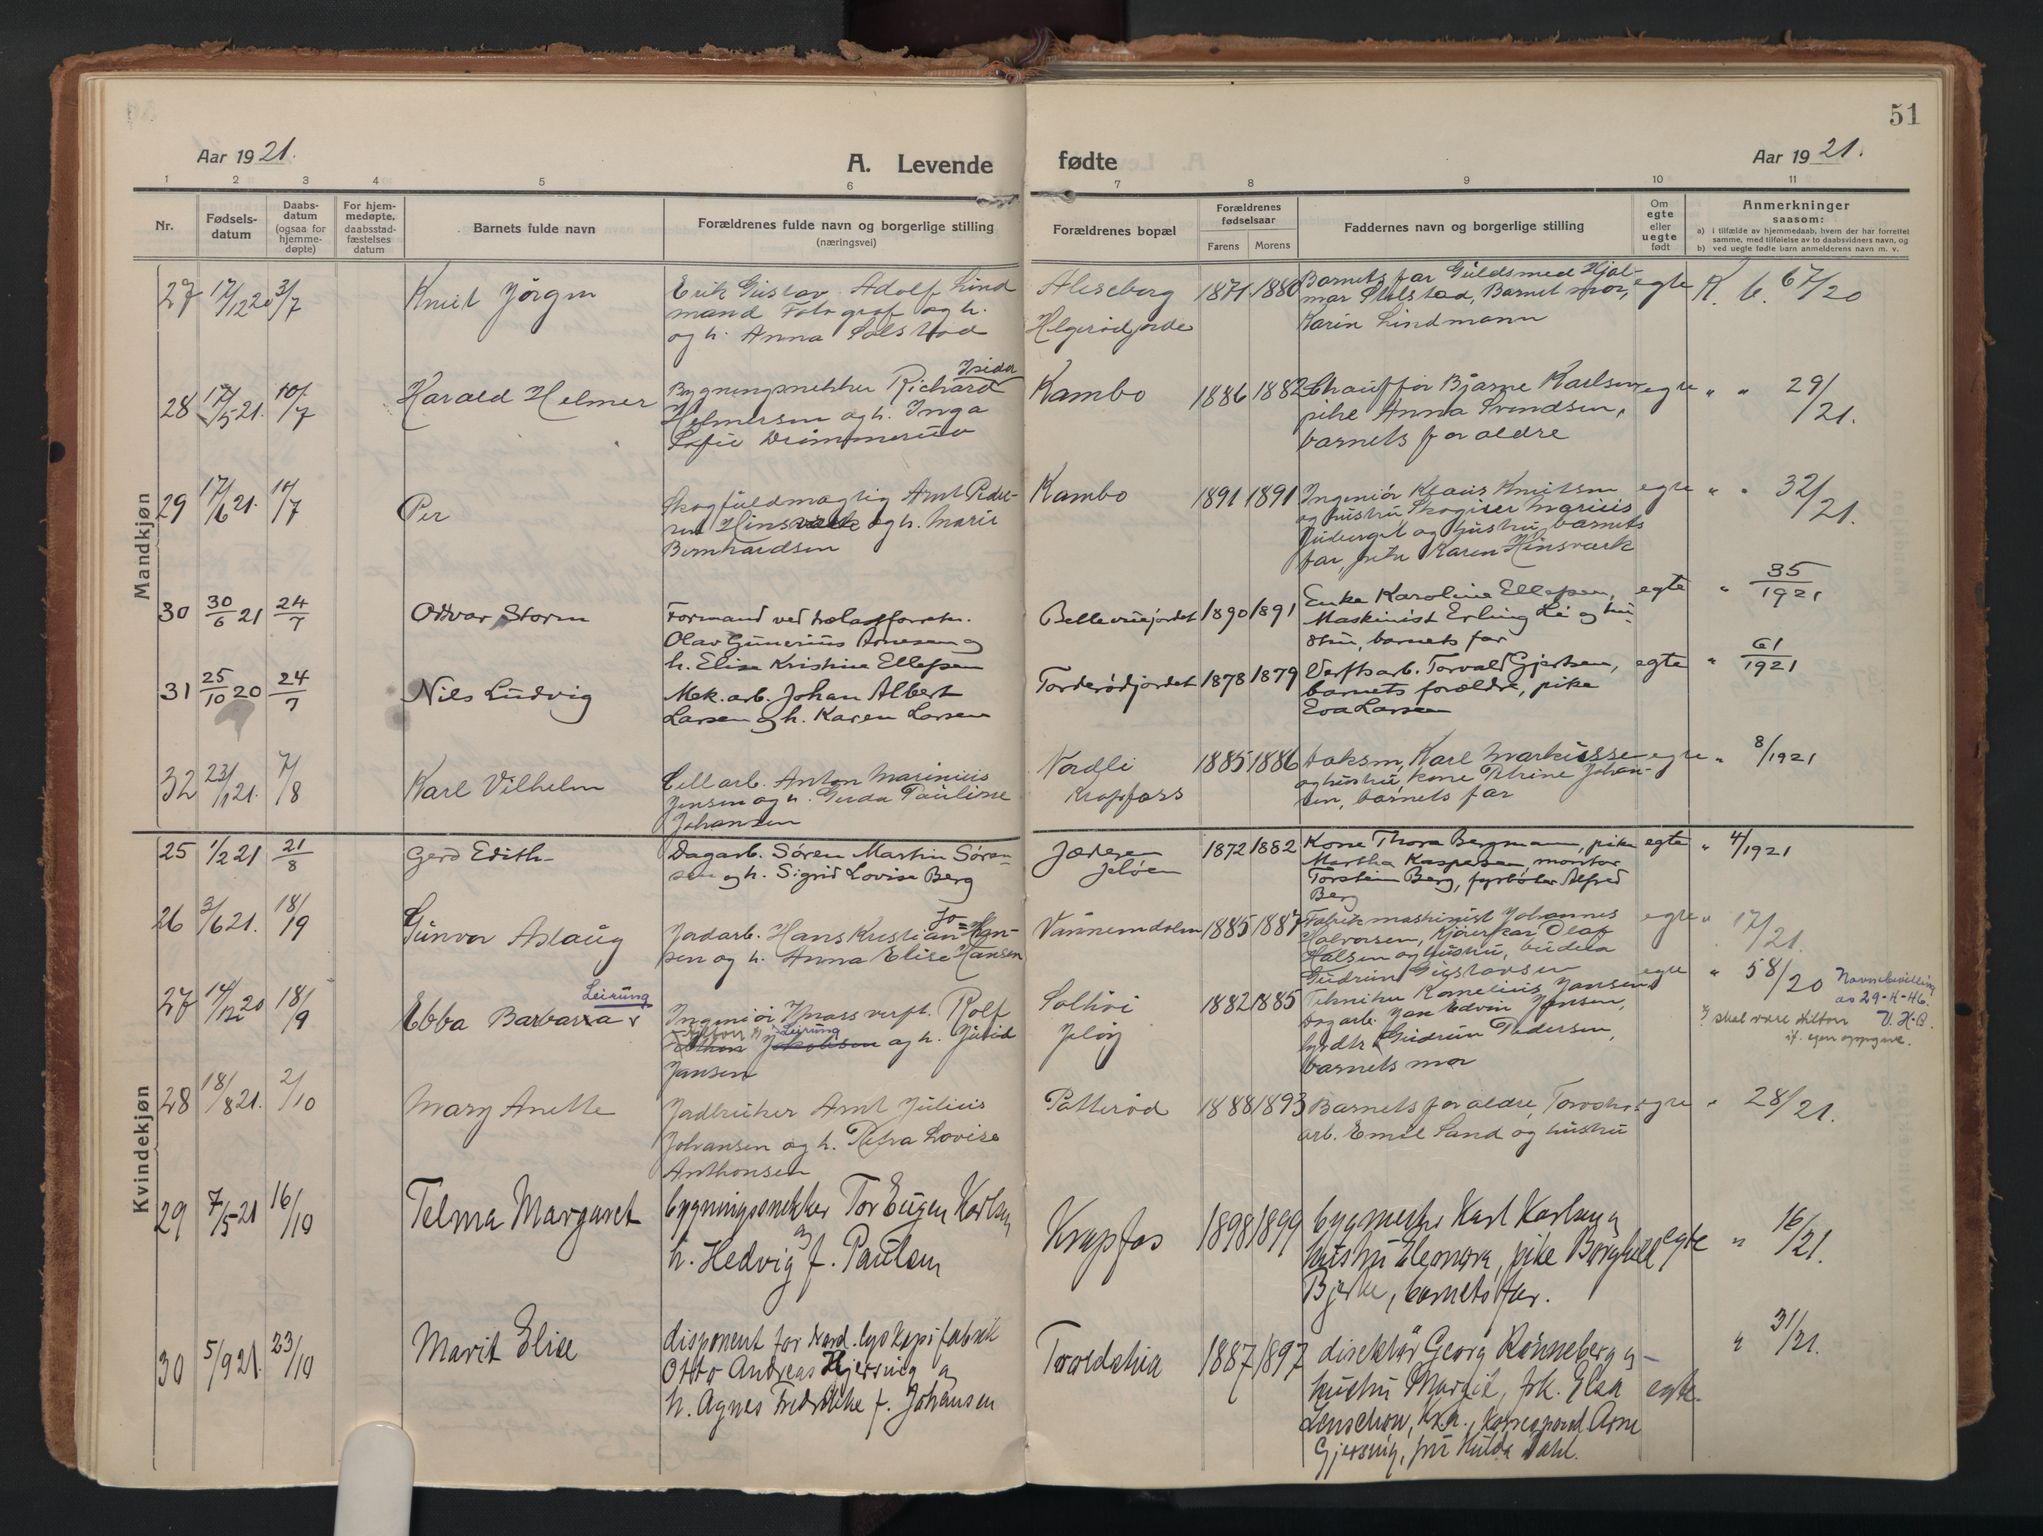 51
Aar 1921.
A. Levende
fødte
Aar 1921.
1 2 3 4 5 6 7 8 9 10 11
Nr.
Fødsels-
datum
Daabs-
datum
(ogsaa for
hjemme-
døpte)
For hjem-
medøpte,
daabsstad-
fæstelses
datum
Barnets fulde navn
Forældrenes fulde navn og borgerlige stilling
(næringsvei)
Forældrenes bopæl
Forældrenes
fødselsaar
Farens Morens
Faddernes navn og borgerlige stilling
Om
egte
eller
uegte
født
Anmerkninger
saasom:
a) i tilfælde av hjemmedaab, hvem der har forrettet
samme, med tilføielse av to daabsvidners navn, og
b) ved uegte fødte barn anmelderens navn m. v.
Mandkjøn
27 17/12 20 3/7 Knut Jörgen
Erik Gustav Adolf Lind
mand Fotograf og h.
og h. Anna Solstad
Alseborg
Helgerødjorde
1871 1880
Barnets far Guldsmed Hjal-
mar Solstad, Barnet mor,
Karin Lindmann
egte K. b. 67/20
28 17/5 21. 10/7 Harald Helmer
Isidor
Bygningsnekker Richard
Helmersen og h. Inga
Sofie Drömmerud
Kambo 1886 1882
Chauffør Bjarne Karlsen
pike Anna Svendsen,
barnets foraldre
egte " " 29/21.
29 17/6 21. 17/7 Per
Skogfuldmagtig Arnt Peder-
sen Hinsværk og h. Marie
Bernhardsen
Kambo 1891 1891
Ingeniør Klaus Knutsen
og hustru Skogeier Marius
og hustru, barnets
far, Karen Hinsværk
egte " " 32/21.
30 30/6 21 24/7 Odvar Storm
Formand ved trælastforretn.
Olav Gunerius Arnesen og
h. Elise Kristine Ellefsen
Bellevuejordet 1890 1891
Enke Karoline Ellefsen,
Maskinist Erling Lie og hu-
stru, barnets far
egte " 35/1921
31 25/10 20 24/7 Nils Ludvig
Mek. arb. Johan Albert
Larsen og h. Karen Larsen
Torderødjordet 1878 1879
Verftsarb. Torvald Gjertsen,
barnets forældre, pike
Eva Larsen
egte " 61/1921
32 23/1 21. 7/8 Karl Vilhelm
Cell arb. Anton Marinius
Jensen og h. Gerda Pauline
Johansen
Nordli
Krapfoss
1885 1886
Karl Markusse
og hustru, kone Petrine Johan-
sen, barnets far
egte " 8/1921
Kvindekjøn
25 1/2 21 21/8 Gerd Edith
Dagarb. Søren Martin Søren-
sen og h. Sigrid Lovise Berg
Jæderen
Jeløen
1872 1882
Kone Thora Bergmann, pike
Martha Kaspersen, montør
Torstein Berg, fyrbøter Alfred
Berg
egte " 4/1921
26 3/6 21. 18/9 Gunvor Aslaug
Jo=
Jordarb. Hans Kristian Han-
sen og h. Anna Elise Hansen
Vannemdalen 1885 1887
Fabrikmaskinist Johannes
Halvorsen, Kjörerkar Olaf
Halsen og hustru, budeia
Gudrun Gustavsen
egte " 17/21.
27 14/12 20 18/9 Ebba Barbara
Leirung
Ingeniør Rolf
Leirung
Jakobsen og h. Jurid
Jansen
Solhøi
Jeløy
1882 1885
Tekniker Kornelius Jansen,
Dagarb. Jan Edvin Jansen,
Gudrun Pedersen,
barnets mor
egte " 58/20
Navnebevilling
av 29-4-46.
V. H-B.
skal være Hilton
if. egen oppgave.
28 18/8 21. 2/10 Mary Anette
Jordbruker Arnt Julius
Johansen og h. Petra Lovise
Anthonsen
Patterød 1888 1893
Barnets foraldre,
arb. Emil Sand og hustru
egte " 28/21.
29 7/5 21 16/10 Telma Margaret
bygningssnekker Tor Eugen Karlsen
og
h. Hedvig f. Paulsen
Krapfos 1898 1899
bygmester Karl Karlsen og
hustru Elenora, pike Borghild
Bjerke, barnets far.
egte " 16/21.
30 5/9 21. 23/10 Marit Elise
disponent for Nord. lyskopifabrik
Otto Andreas Gjersvig og
h. Agnes Fredrikke f. Johansen
Torvoldslia 1887 1897
direktør Georg Rønneberg og
hustru Margit, frk. Elsa
Lenschow, Kra., korrespond. Arne
Gjersvig, fru Hulda Dahl.
egte. " 31/21.